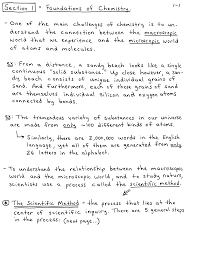 Section 1 - Foundations of Chemistry.
1-1
- One of the main challenges of chemistry is to un-
derstand the connection between the macroscopic
world that we experience and the microscopic world
of atoms and molecules.
EX: From a distance, a sandy beach looks like a single
continuous "solid substance." Up close however, a san-
dy beach consists of unique individual grains of
sand. And furthermore, each of these grains of sand
are themselves individual silicon and oxygen atoms
connected by bonds.
EX: The tremendous variety of substances in our universe
are made from only ~100 different kinds of atoms.
↳ Similarly, there are 2,000,000 words in the English
language, yet all of them are generated from only
26 letters in the alphabet.
- To understand the relationship between the macroscopic
world and the microscopic world, and to study nature,
scientists use a process called the scientific method.
The Scientific Method = the process that lies at the
center of scientific inquiry. There are 5 general steps
in the process: (next page...)